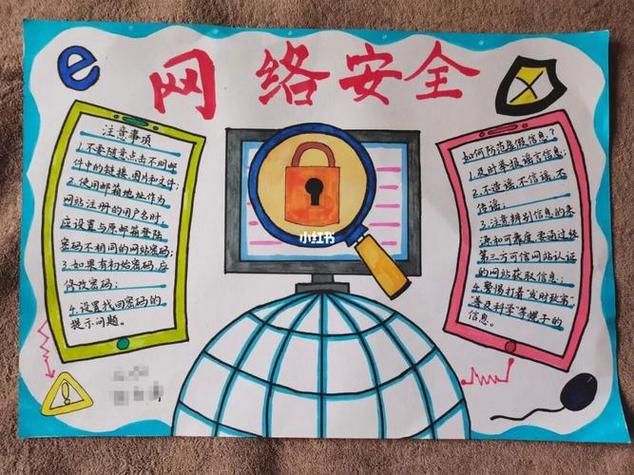 网络安全
注意事项
1.不要随意点击不明邮
件中的链接、图片和文件;
2.使用邮箱地址作为
网站注册的用户名时,
应设置与原邮箱登陆
密码不相同的网站密码;
3.如果有初始密码,应
修改密码;
4.设置找回密码的
提示问题。
小红书
如何防范虚假信息?
1.及时举报谣言信息;
2.不造谣,不信谣,不
传谣;
3.注意辨别信息的来
源和可靠度,要通过经
第三方可信网站认证
的网站获取信息;
4.警惕打着"发财致富"
"普及科学"等幌子的
信息。